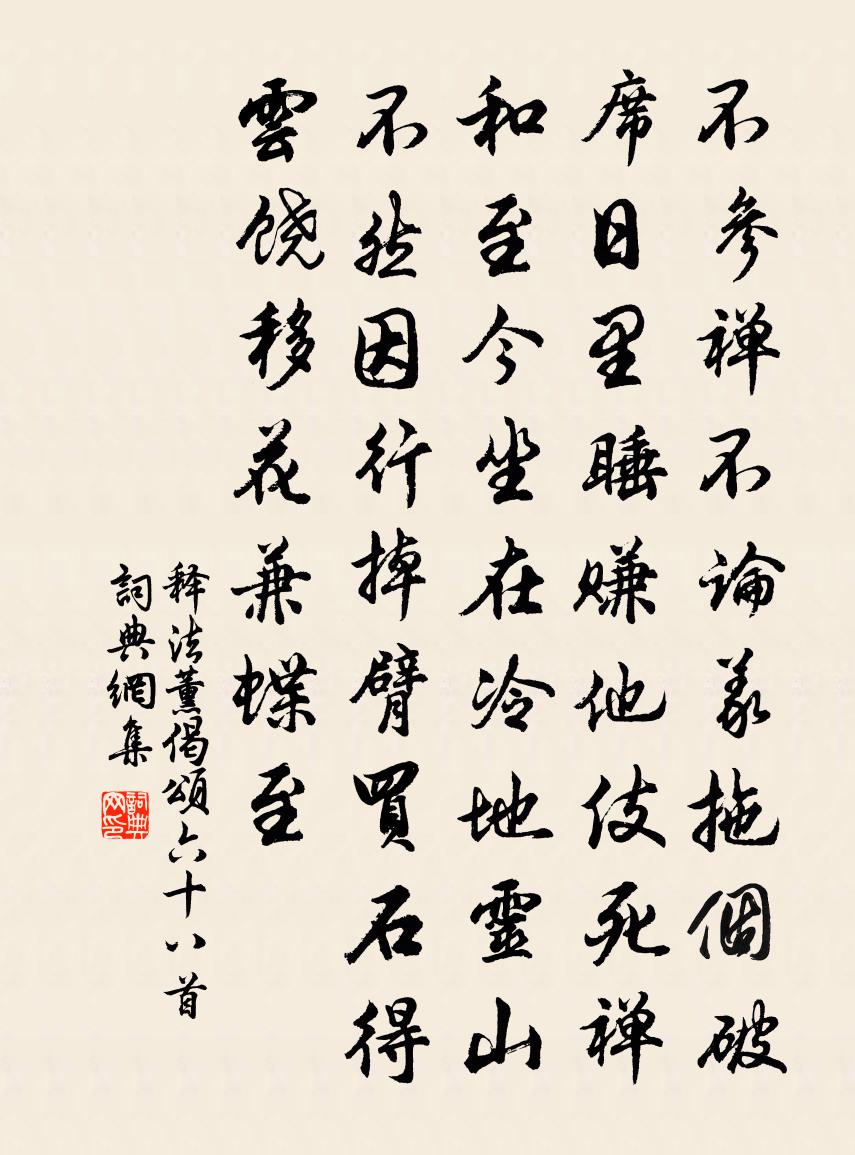 不參禅不論義拖個破
席日里睡赚他伎死禅
和至今坐在冷地靈山
不然因行掉臂買石得
雲饶移花兼蝶至
释法薰偈頌六十八首
詞典網集
詞典网印